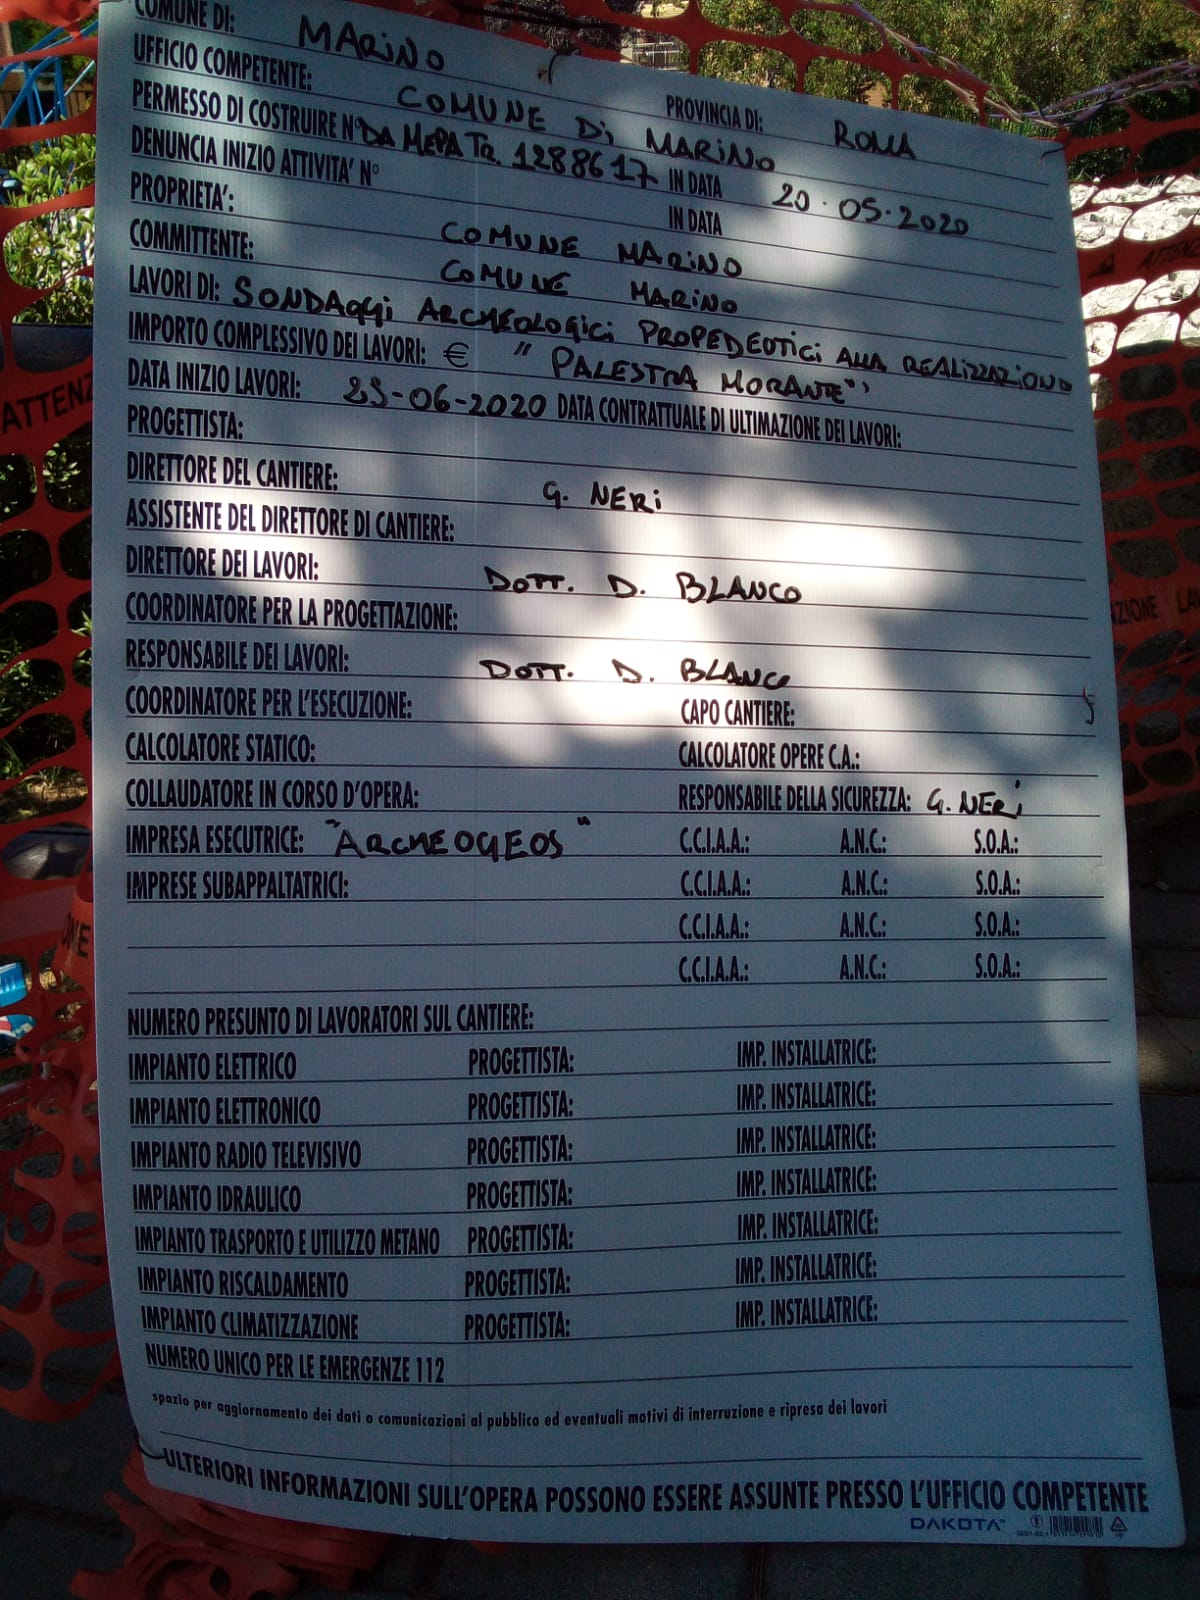 COMUNE DI: MARINO PROVINCIA DI: ROMA
UFFICIO COMPETENTE: COMUNE DI MARINO
PERMESSO DI COSTRUIRE N° DA MEPA TR. 1288617 IN DATA 20.05.2020
DENUNCIA INIZIO ATTIVITA' N° IN DATA
PROPRIETA': COMUNE MARINO
COMMITTENTE: COMUNE MARINO
LAVORI DI: SONDAGGI ARCHEOLOGICI PROPEDEUTICI ALLA REALIZZAZIONE
IMPORTO COMPLESSIVO DEI LAVORI: € "PALESTRA MORANTE"
DATA INIZIO LAVORI: -06-2020 DATA CONTRATTUALE DI ULTIMAZIONE DEI LAVORI:
PROGETTISTA:
DIRETTORE DEL CANTIERE: G. NERI
ASSISTENTE DEL DIRETTORE DI CANTIERE:
DIRETTORE DEI LAVORI: DOTT. D. BLANCO
COORDINATORE PER LA PROGETTAZIONE:
RESPONSABILE DEI LAVORI: DOTT. D. BLANCO
COORDINATORE PER L'ESECUZIONE: CAPO CANTIERE:
CALCOLATORE STATICO: CALCOLATORE OPERE C.A.:
COLLAUDATORE IN CORSO D'OPERA: RESPONSABILE DELLA SICUREZZA: G. NERI
IMPRESA ESECUTRICE: "ARCHEOGEOS" C.C.I.A.A.: A.N.C.: S.O.A.:
IMPRESE SUBAPPALTATRICI: C.C.I.A.A.: A.N.C.: S.O.A.:
C.C.I.A.A.: A.N.C.: S.O.A.:
C.C.I.A.A.: A.N.C.: S.O.A.:
NUMERO PRESUNTO DI LAVORATORI SUL CANTIERE:
IMPIANTO ELETTRICO PROGETTISTA: IMP. INSTALLATRICE:
IMPIANTO ELETTRONICO PROGETTISTA: IMP. INSTALLATRICE:
IMPIANTO RADIO TELEVISIVO PROGETTISTA: IMP. INSTALLATRICE:
IMPIANTO IDRAULICO PROGETTISTA: IMP. INSTALLATRICE:
IMPIANTO TRASPORTO E UTILIZZO METANO PROGETTISTA: IMP. INSTALLATRICE:
IMPIANTO RISCALDAMENTO PROGETTISTA: IMP. INSTALLATRICE:
IMPIANTO CLIMATIZZAZIONE PROGETTISTA: IMP. INSTALLATRICE:
NUMERO UNICO PER LE EMERGENZE 112
spazio per aggiornamento dei dati o comunicazioni al pubblico ed eventuali motivi di interruzione e ripresa dei lavori
ULTERIORI INFORMAZIONI SULL'OPERA POSSONO ESSERE ASSUNTE PRESSO L'UFFICIO COMPETENTE
DAKOTA™